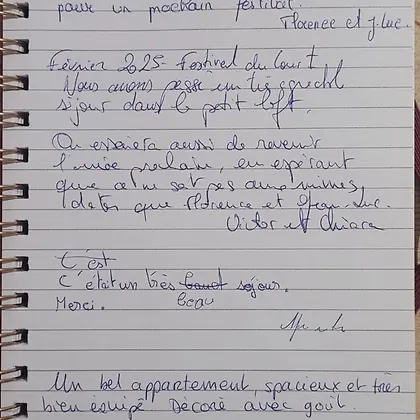 pour un prochain festival.
Florence et J. Luc.
Février 2025 - Festival du Court
Nous avons passé un très agréable
séjour dans le petit loft.
On essaiera aussi de revenir
l'année prochaine, en espérant
que ce ne soit pas aux mêmes
dates que Florence et Jean-Luc.
Victor et Chiara
C'est
C'était un très beau séjour.
Merci.
Un bel appartement, spacieux et très
bien équipé. Décoré avec goût.